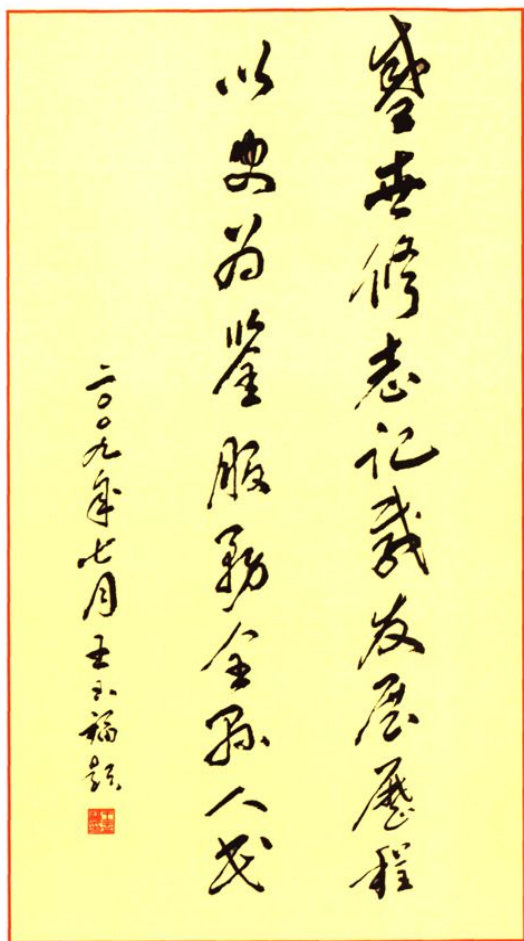 盛世修志记载发展历程
以史为鉴服务全县人民
二〇〇九年七月 王玉福题